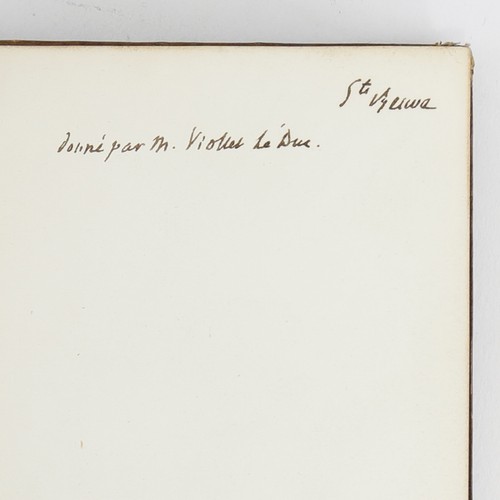 Ste Beuve
donné par M. Viollet Le Duc.